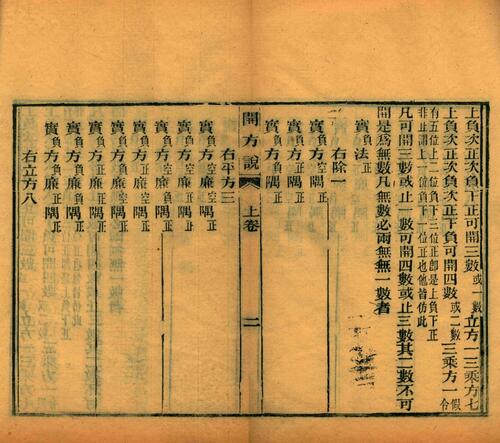 上負次正次負下正可開三數或一數立方一三乘方七
上負次正次負次正下負可開四數或二數三乘方一令假
有五位上二位負下三位正卽是上負下正
非止謂上一位負下一位正也他皆仿此
凡可開三數或止一數可開四數或止三數其二數不可
開是爲無數凡無數必兩無無一數者
實負法正
右除一
實負方空隅正
實負方正隅正
實負方負隅正
開方說
上卷
二
右平方三
實負方空廉空隅正
實負方正廉空隅正
實負方負廉空隅正
實負方空廉正隅正
實負方空廉負隅正
實負方正廉正隅正
實負方負廉負隅正
實負方負廉正隅正
右立方八